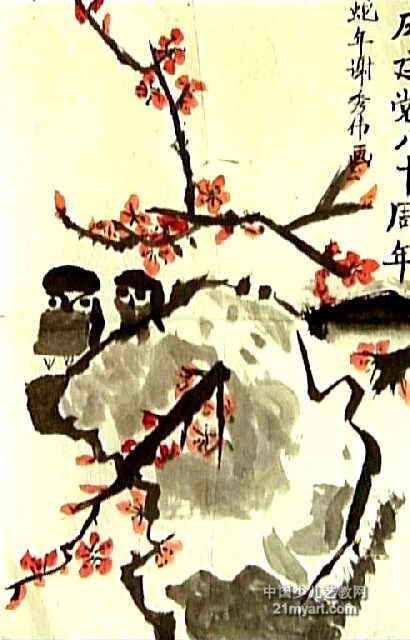 庆建党八十周年
蛇年谢秀伟画
中国少儿艺教网
21myart.com